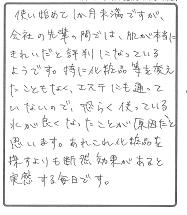 使い始めて1か月未満ですが、
会社の先輩の間では、肌が本当に
きれいだと評判になっている
ようです。特に化粧品等を変え
たこともなく、エステにも通って
いないので、恐らく使っている
水が良くなったことが原因だと
思います。あれこれ化粧品を
探すよりも断然効果があると
実感する毎日です。